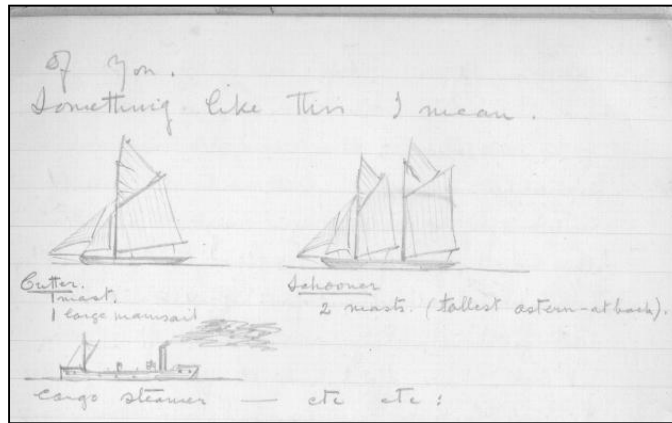 of you.
Something like this I mean.
Cutter.
1 mast.
1 large mainsail
Schooner
2 masts. (tallest astern - at back).
Cargo steamer — etc etc: